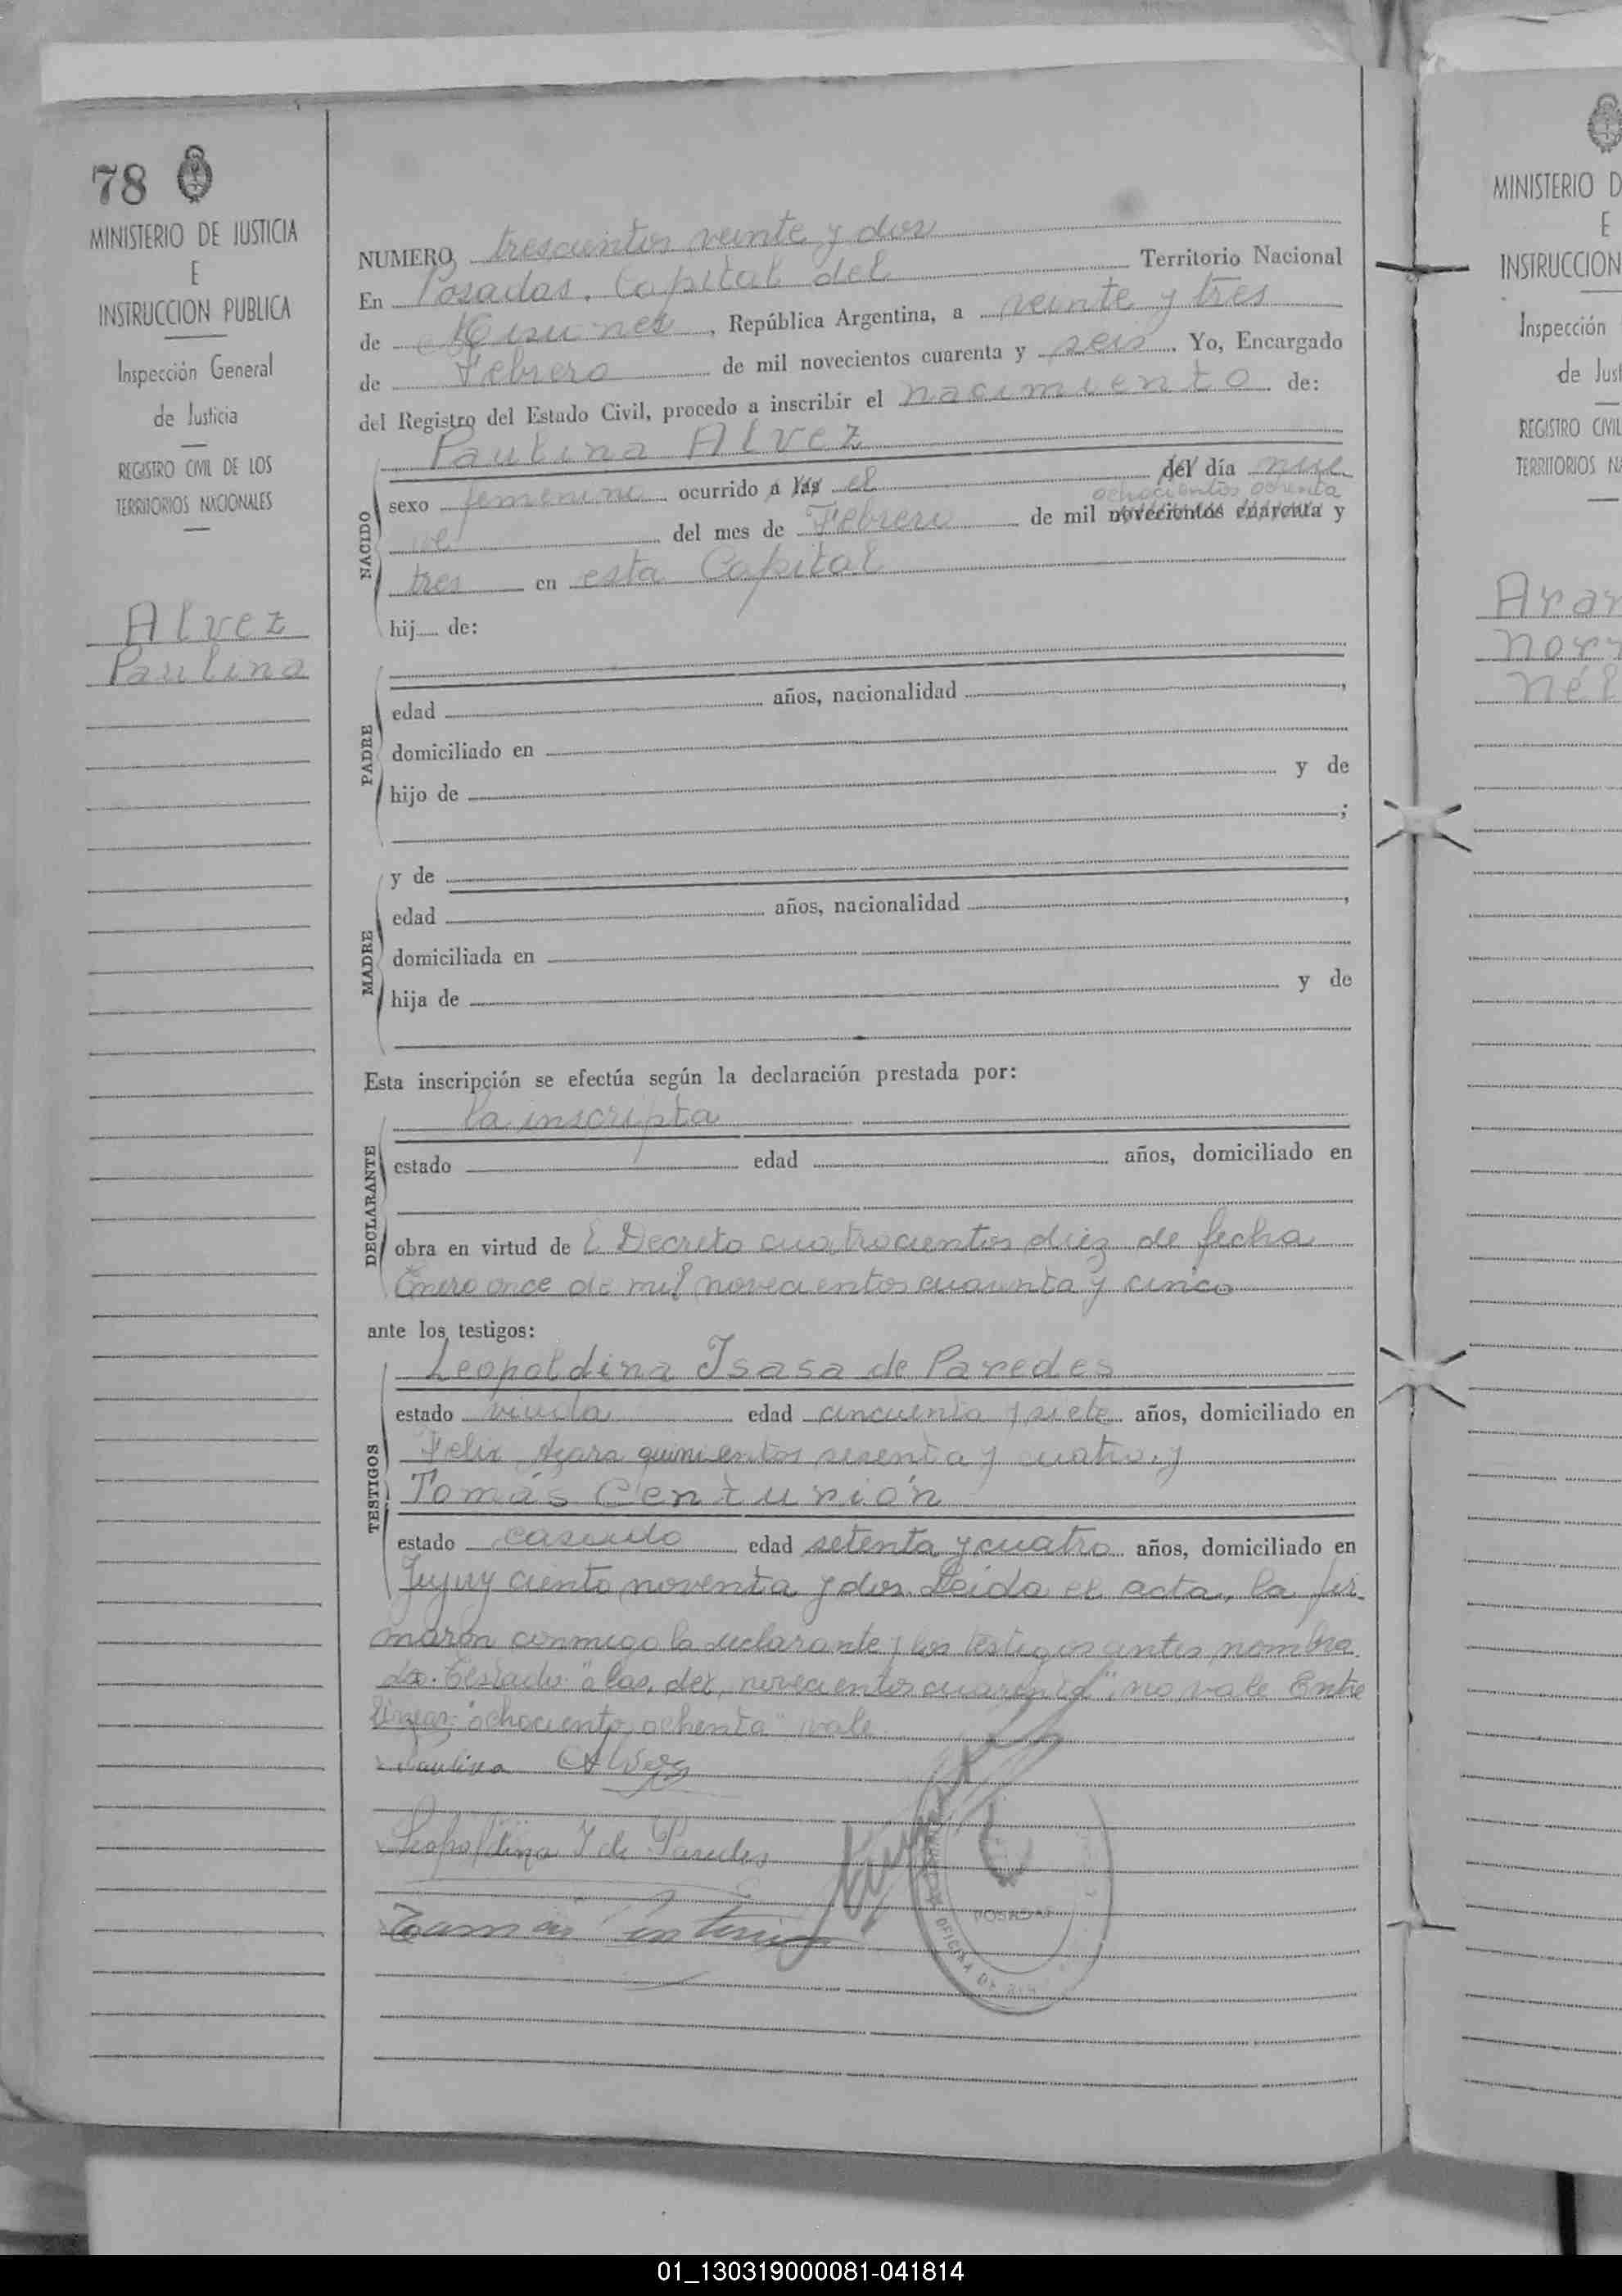 78
MINISTERIO DE JUSTICIA
E
INSTRUCCION PUBLICA
Inspección General
de Justicia
REGISTRO CIVIL DE LOS
TERRITORIOS NACIONALES
Alvez
Paulina
NUMERO trescientos veinte y dos
En Posadas, Capital del Territorio Nacional
de Misiones, República Argentina, a veinte y tres
de Febrero de mil novecientos cuarenta y seis. Yo, Encargado
del Registro del Estado Civil, procedo a inscribir el nacimiento de:
Paulina Alvez
NACIDO
sexo femenino ocurrido a las el del día nue
ochocientos ochenta
ve del mes de Febrero de mil novecientos cuarenta y
tres en esta Capital
hij de:
PADRE
edad años, nacionalidad ,
domiciliado en
hijo de y de
;
MADRE
y de
edad años, nacionalidad ,
domiciliada en
hija de y de
Esta inscripción se efectúa según la declaración prestada por:
DECLARANTE
la inscripta
estado edad años, domiciliado en
obra en virtud de l Decreto cuatrocientos diez de fecha
Enero once de mil novecientos cuarenta y cinco
ante los testigos:
TESTIGOS
Leopoldina Isasa de Paredes
estado viuda edad cincuenta y siete años, domiciliado en
Felix Azara quinientos sesenta y cuatro. y
Tomás Centurión
estado casado edad setenta y cuatro años, domiciliado en
Jujuy ciento noventa y dos. Leida el acta, la fir
maron conmigo la declarante y los testigos antes nombra
dos. Testado: "a las, del, novecientos cuarenta", no vale. Entre
lineas: "ochocientos ochenta" vale
Paulina Alvez
Leopoldina I de Paredes
Tomas Centurion
POSADAS
OFICINA DE
MINISTERIO D
E
INSTRUCCION
Inspección
de Just
REGISTRO CIVIL
TERRITORIOS N
Arar
Nor
Nél
01_130319000081-041814